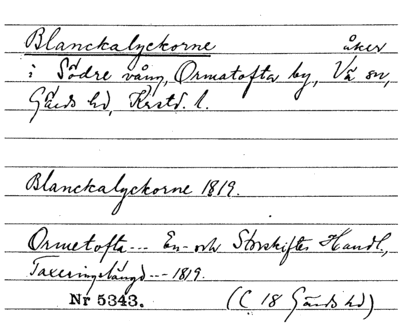 Blanckalyckorne åker
i Södre vång, Ormatofta by, Vä sn,
Gärds hd, Krstd. l.
Blanckalyckorne 1819.
Ormetofta--- En- och Storskiftes Handl.,
Taxeringslängd --- 1819.
Nr 5343. (C 18 Gärds hd)